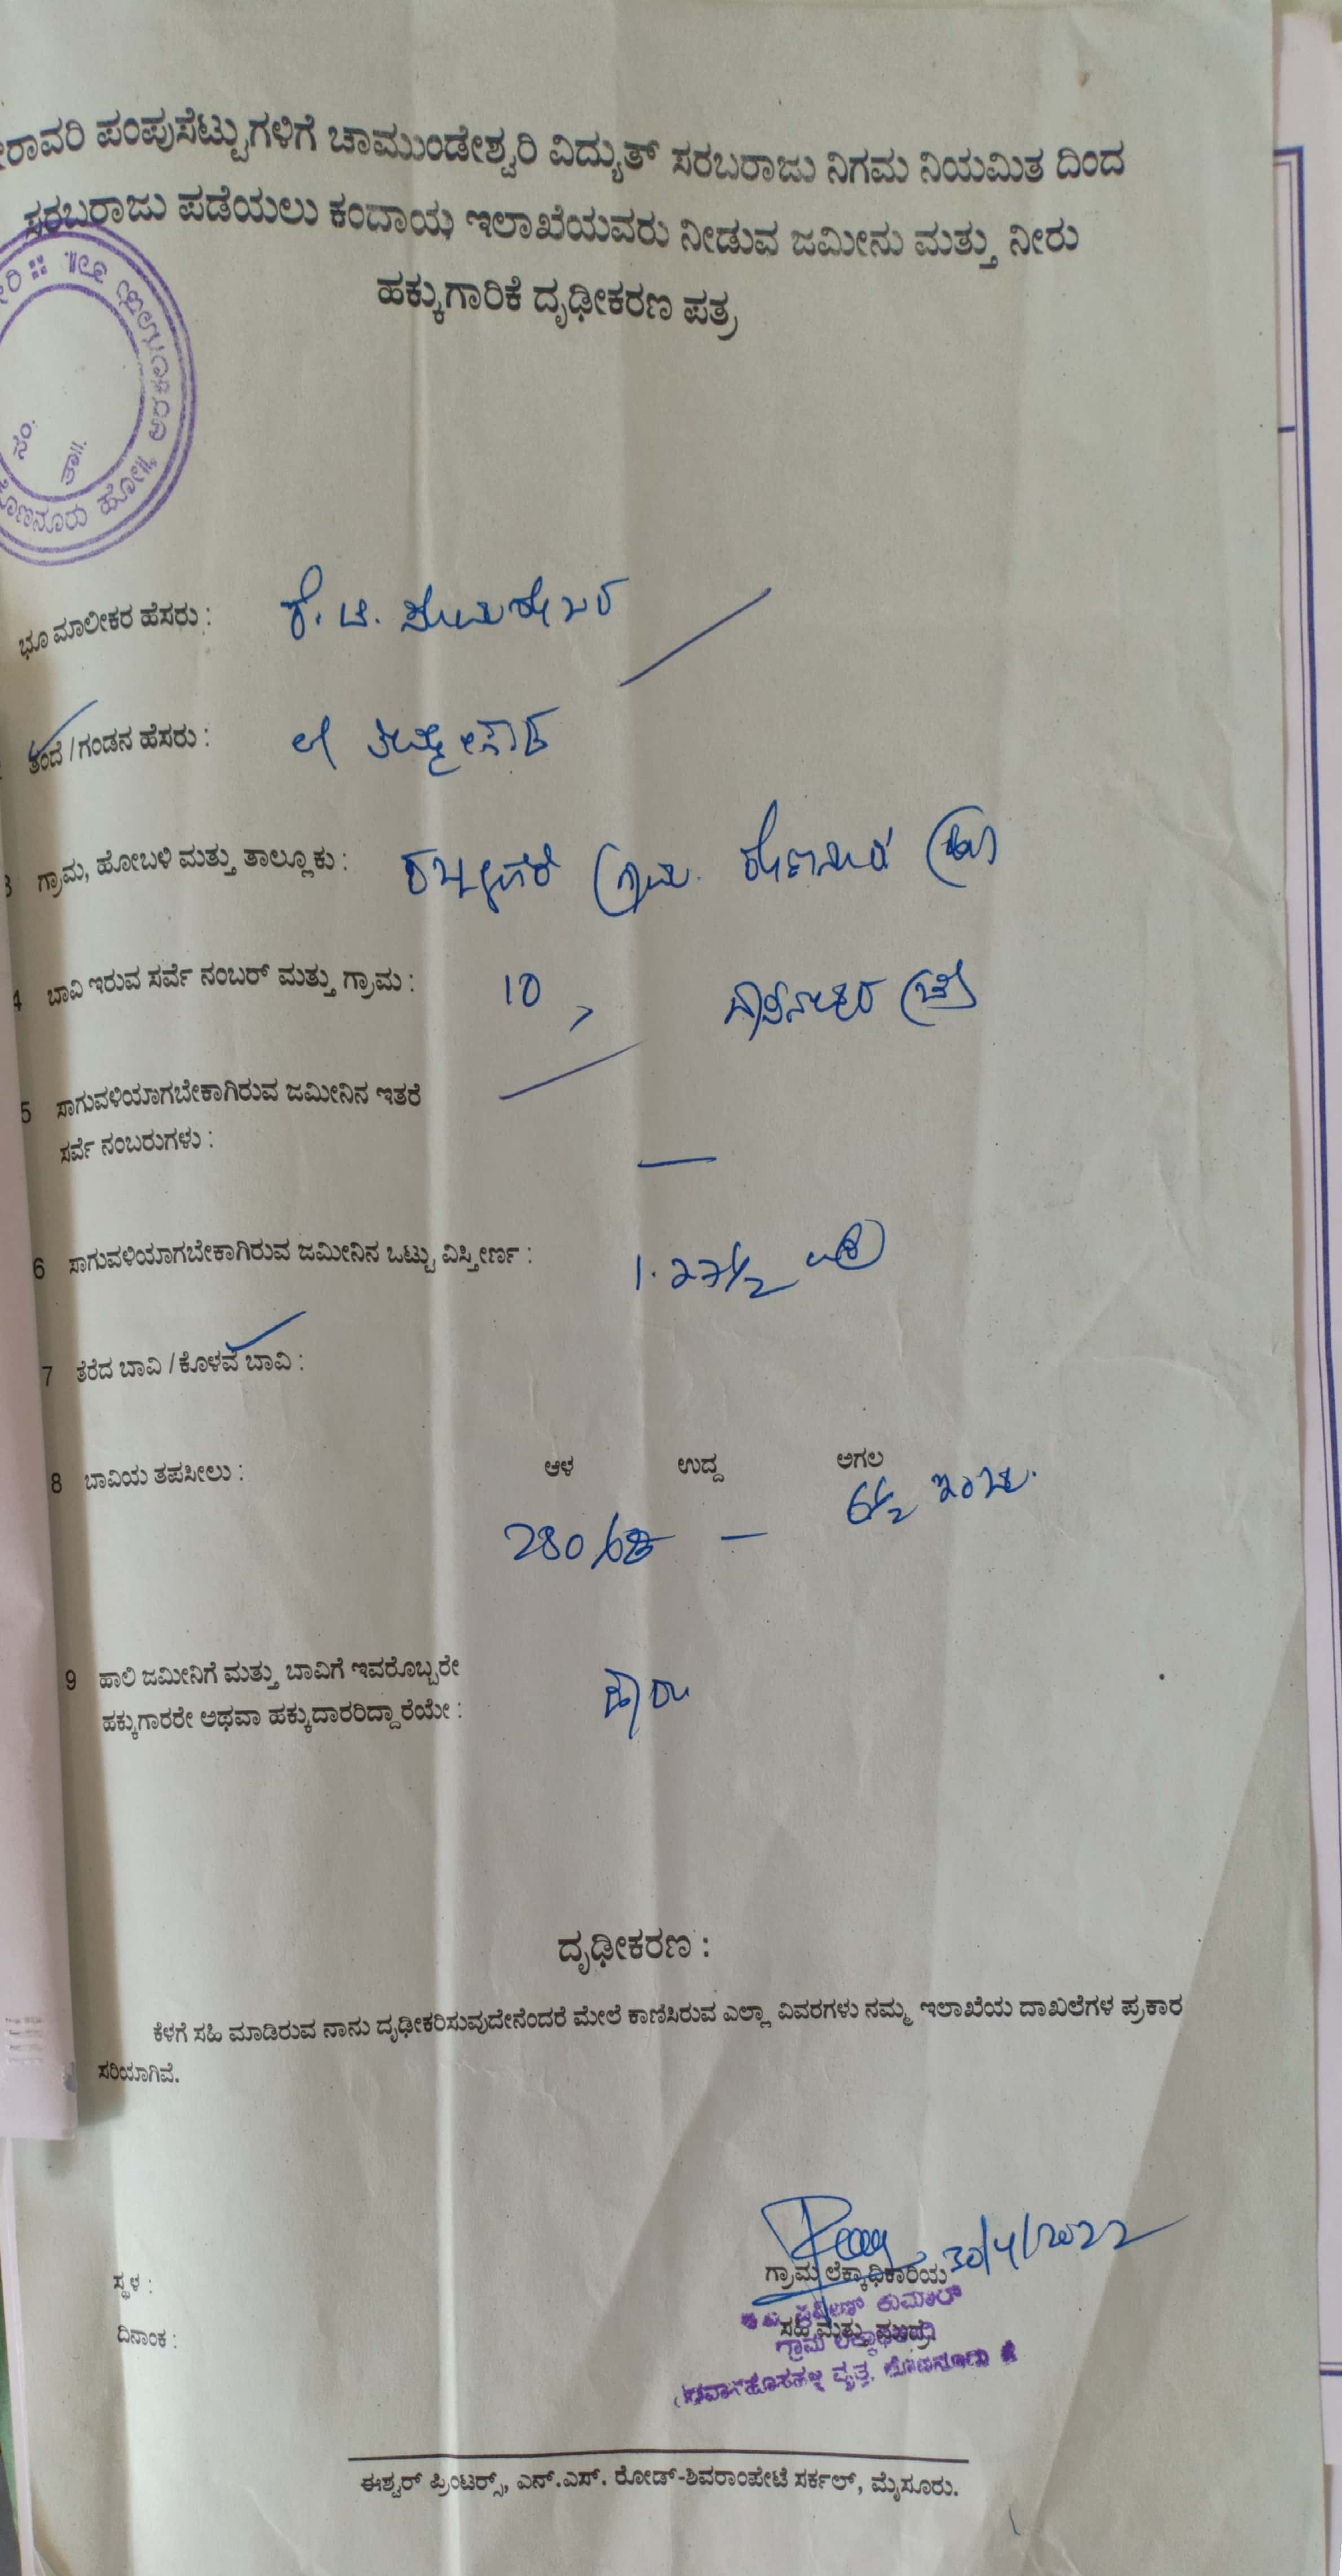 ರಾವರಿ ಪಂಪುಸೆಟ್ಟುಗಳಿಗೆ ಚಾಮುಂಡೇಶ್ವರಿ ವಿದ್ಯುತ್ ಸರಬರಾಜು ನಿಗಮ ನಿಯಮಿತ ದಿಂದ
ಸರಬರಾಜು ಪಡೆಯಲು ಕಂದಾಯ ಇಲಾಖೆಯವರು ನೀಡುವ ಜಮೀನು ಮತ್ತು ನೀರು
ಹಕ್ಕುಗಾರಿಕೆ ದೃಢೀಕರಣ ಪತ್ರ
ನಂ.
ತಾ॥.
ಅರಕಲಗೂಡು ತಾ॥
ಹೋ॥
ಭೂ ಮಾಲೀಕರ ಹೆಸರು : ಕೆ. ಟಿ.
ತಂದೆ / ಗಂಡನ ಹೆಸರು :
3 ಗ್ರಾಮ, ಹೋಬಳಿ ಮತ್ತು ತಾಲ್ಲೂಕು : ಗ್ರಾಮ. ಕೊಣನೂರು (ಹೋ)
4 ಬಾವಿ ಇರುವ ಸರ್ವೆ ನಂಬರ್ ಮತ್ತು ಗ್ರಾಮ : 10 ,
5 ಸಾಗುವಳಿಯಾಗಬೇಕಾಗಿರುವ ಜಮೀನಿನ ಇತರೆ
ಸರ್ವೆ ನಂಬರುಗಳು : —
6 ಸಾಗುವಳಿಯಾಗಬೇಕಾಗಿರುವ ಜಮೀನಿನ ಒಟ್ಟು ವಿಸ್ತೀರ್ಣ : 1.27½
7 ತೆರೆದ ಬಾವಿ / ಕೊಳವೆ ಬಾವಿ :
8 ಬಾವಿಯ ತಪಸೀಲು : ಆಳ ಉದ್ದ ಅಗಲ
280 ಅಡಿ — 6½ ಇಂಚು.
9 ಹಾಲಿ ಜಮೀನಿಗೆ ಮತ್ತು ಬಾವಿಗೆ ಇವರೊಬ್ಬರೇ
ಹಕ್ಕುಗಾರರೇ ಅಥವಾ ಹಕ್ಕುದಾರರಿದ್ದಾರೆಯೇ : ಹೌದು
ದೃಢೀಕರಣ :
ಕೆಳಗೆ ಸಹಿ ಮಾಡಿರುವ ನಾನು ದೃಢೀಕರಿಸುವುದೇನೆಂದರೆ ಮೇಲೆ ಕಾಣಿಸಿರುವ ಎಲ್ಲಾ ವಿವರಗಳು ನಮ್ಮ ಇಲಾಖೆಯ ದಾಖಲೆಗಳ ಪ್ರಕಾರ
ಸರಿಯಾಗಿವೆ.
30/4/2022
ಸ್ಥಳ : ಗ್ರಾಮ ಲೆಕ್ಕಾಧಿಕಾರಿಯ
ಪ್ರವೀಣ್ ಕುಮಾರ್
ದಿನಾಂಕ : ಸಹಿ ಮತ್ತು ಮುದ್ರೆ
ಗ್ರಾಮ ಲೆಕ್ಕಾಧಿಕಾರಿ
ವೃತ್ತ, ಕೊಣನೂರು
ಈಶ್ವರ್ ಪ್ರಿಂಟರ್ಸ್, ಎನ್.ಎಸ್. ರೋಡ್-ಶಿವರಾಂಪೇಟೆ ಸರ್ಕಲ್, ಮೈಸೂರು.